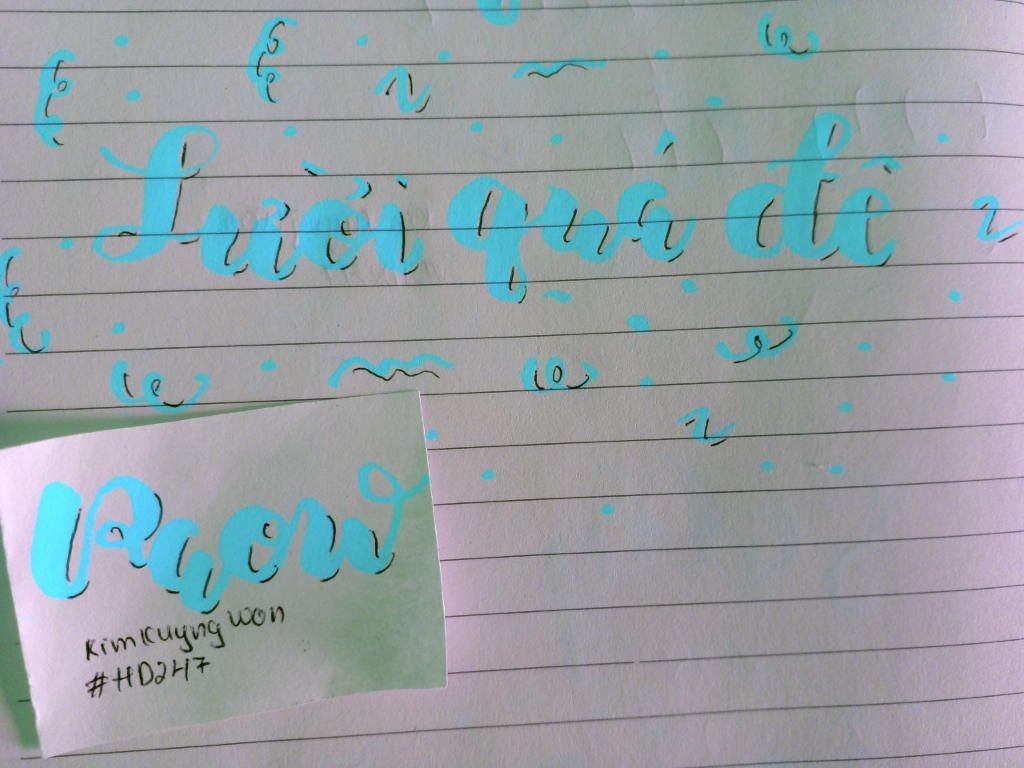 Lười quá đê
Raow
Kim Kuyng won
#HD247